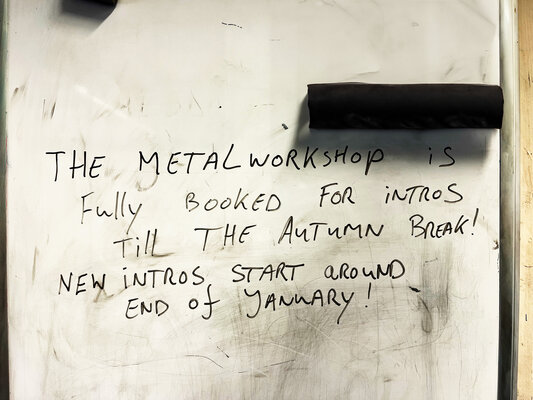 THE METALWORKSHOP is
Fully BOOKED FOR iNTROS
Till THE AUTUMN BREAK!
NEW iNTROS START aROUND
END of YANUARY!